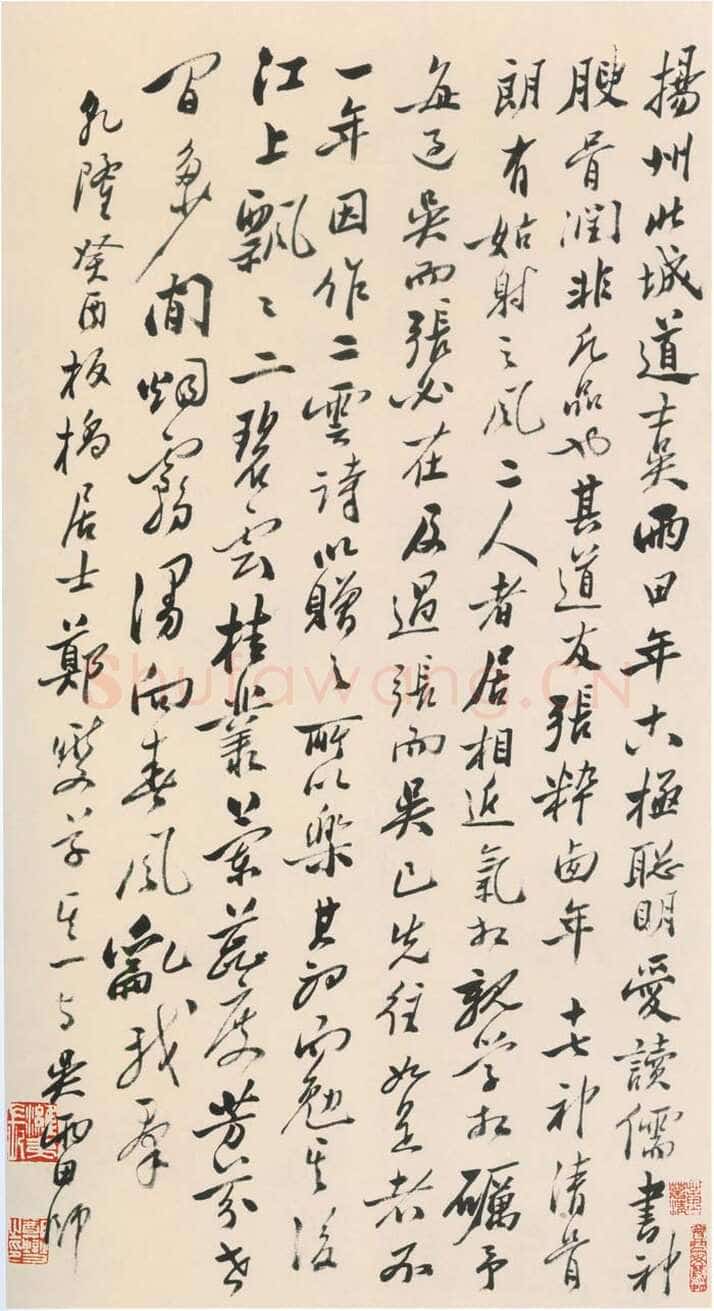 揚州北城道士吳雨田年十六極聰明愛讀儒書神
腴骨潤非凡品也其道友張粹西年十七神清骨
朗有姑射之風二人者居相近氣相親學相礪予
每過吳而張必在及過張而吳已先往如是者不
一年因作二雲詩以贈之所以樂其初而勉其後
江上飄〻二碧雲桂叢蘭蕊度芳芬世
間多少閒煙靄漫向春風亂我羣
乾隆癸酉板橋居士鄭燮草其一与吳雨田師
Shufawang.CN